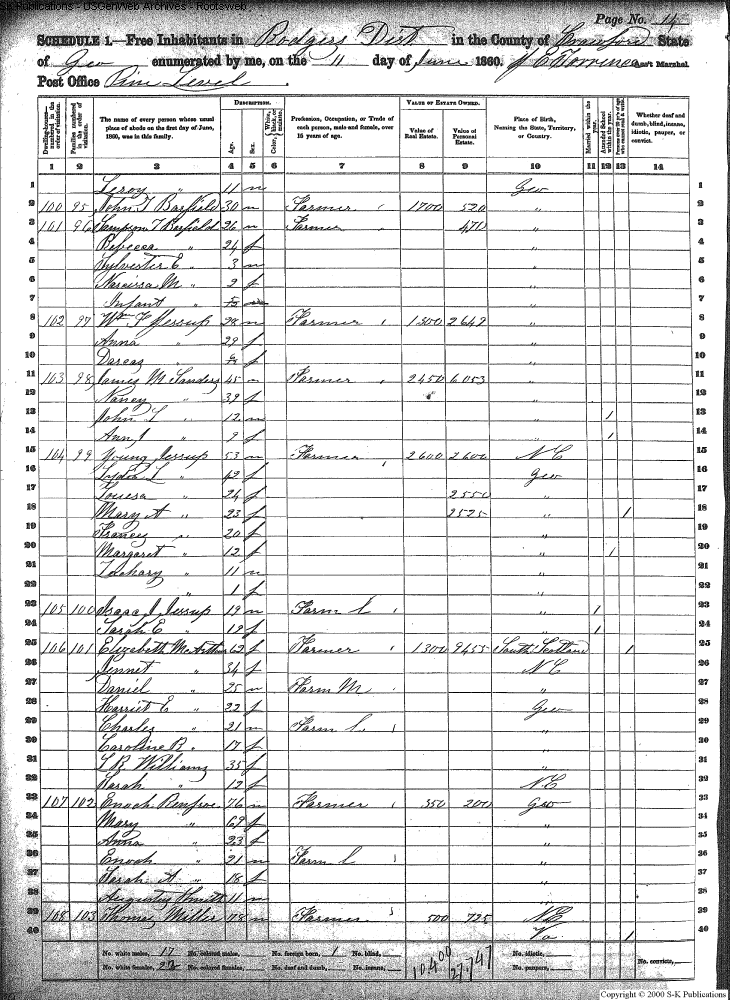 S-K Publications - USGenWeb Archives - Rootsweb
Page No. 15
SCHEDULE 1.—Free Inhabitants in Rodgers Dist in the County of Crawford State
of Geo enumerated by me, on the 11 day of June 1860. J C Torrence Ass't Marshal.
Post Office Pine Level.
Dwelling-houses—numbered in the order of visitation.
Families numbered in the order of visitation.
The name of every person whose usual place of abode on the first day of June, 1860, was in this family.
DESCRIPTION.
Age.
Sex.
Color, White, black, or mulatto.
Profession, Occupation, or Trade of each person, male and female, over 15 years of age.
VALUE OF ESTATE OWNED.
Value of Real Estate.
Value of Personal Estate.
Place of Birth, Naming the State, Territory, or Country.
Married within the year.
Attended School within the year.
Whether deaf and dumb, blind, insane, idiotic, pauper, or convict.
1 2 3 4 5 6 7 8 9 10 11 12 13 14
1 Leroy " 11 m Geo 1
2 100 95 John T Barfield 30 m Farmer 1700 520 " 2
3 101 96 Sampson T Barfield 26 m Farmer 470 " 3
4 Rebecca " 24 f " 4
5 Sylvester E " 3 m " 5
6 Narcissa M " 2 f " 6
7 Infant " " 7
8 102 97 Wm F Jessup 28 m Farmer 1300 2649 " 8
9 Anna " 29 f " 9
10 Darcas f " 10
11 103 98 James M Sanders 45 m Farmer 2450 6053 " 11
12 Nancy " 39 f " 12
13 John L " 12 m " / 13
14 Ann J " 9 f " / 14
15 104 99 Young Jessup 53 m Farmer 2600 2600 NC 15
16 Lydia L " 42 f Geo 16
17 Louesa " 24 f 2550 " 17
18 Mary A " 23 f 2525 " / 18
19 Francy " 20 f " 19
20 Margaret " 12 f " / 20
21 Zachary " 11 m " 21
22 " 1 f " 22
23 105 100 Isaac J Jessup 19 m Farm L " / 23
24 Sarah E " 19 f " / 24
25 106 101 Elizabeth McArthur 62 f Farmer 1300 9455 South Scotland / 25
26 Jennet " 34 f NC 26
27 Daniel " 25 m Farm M " 27
28 Harriet E " 22 f Geo 28
29 Charles " 21 m Farm L " 29
30 Caroline B " 17 f " 30
31 L B Williams 35 f " 31
32 Sarah " 12 f NC 32
33 107 102 Enoch Renfroe 76 m Farmer 350 200 Geo 33
34 Mary " 69 f " 34
35 Anna " 23 f " 35
36 Enoch " 21 m Farm L " 36
37 Sarah A " 18 f " 37
38 Augustus Smith 11 m " 38
39 108 103 Thomas Miller 78 m Farmer 500 725 39
40 Va / 40
No. white males, 17 No. colored males, No. foreign born, 1 No. blind, 10,400 27,747 No. idiotic, No. convicts,
No. white females, 22 No. colored females, No. deaf and dumb, No. insane, No. paupers,
Copyright © 2000 S-K Publications